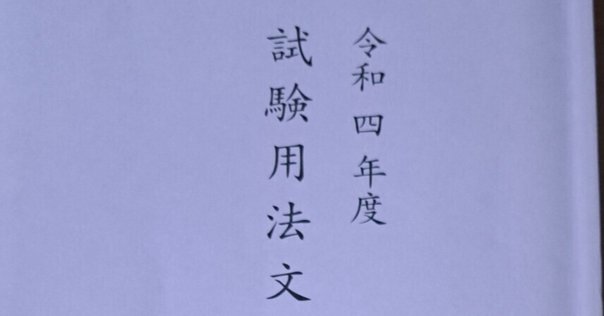 令和四年度
試験用法文